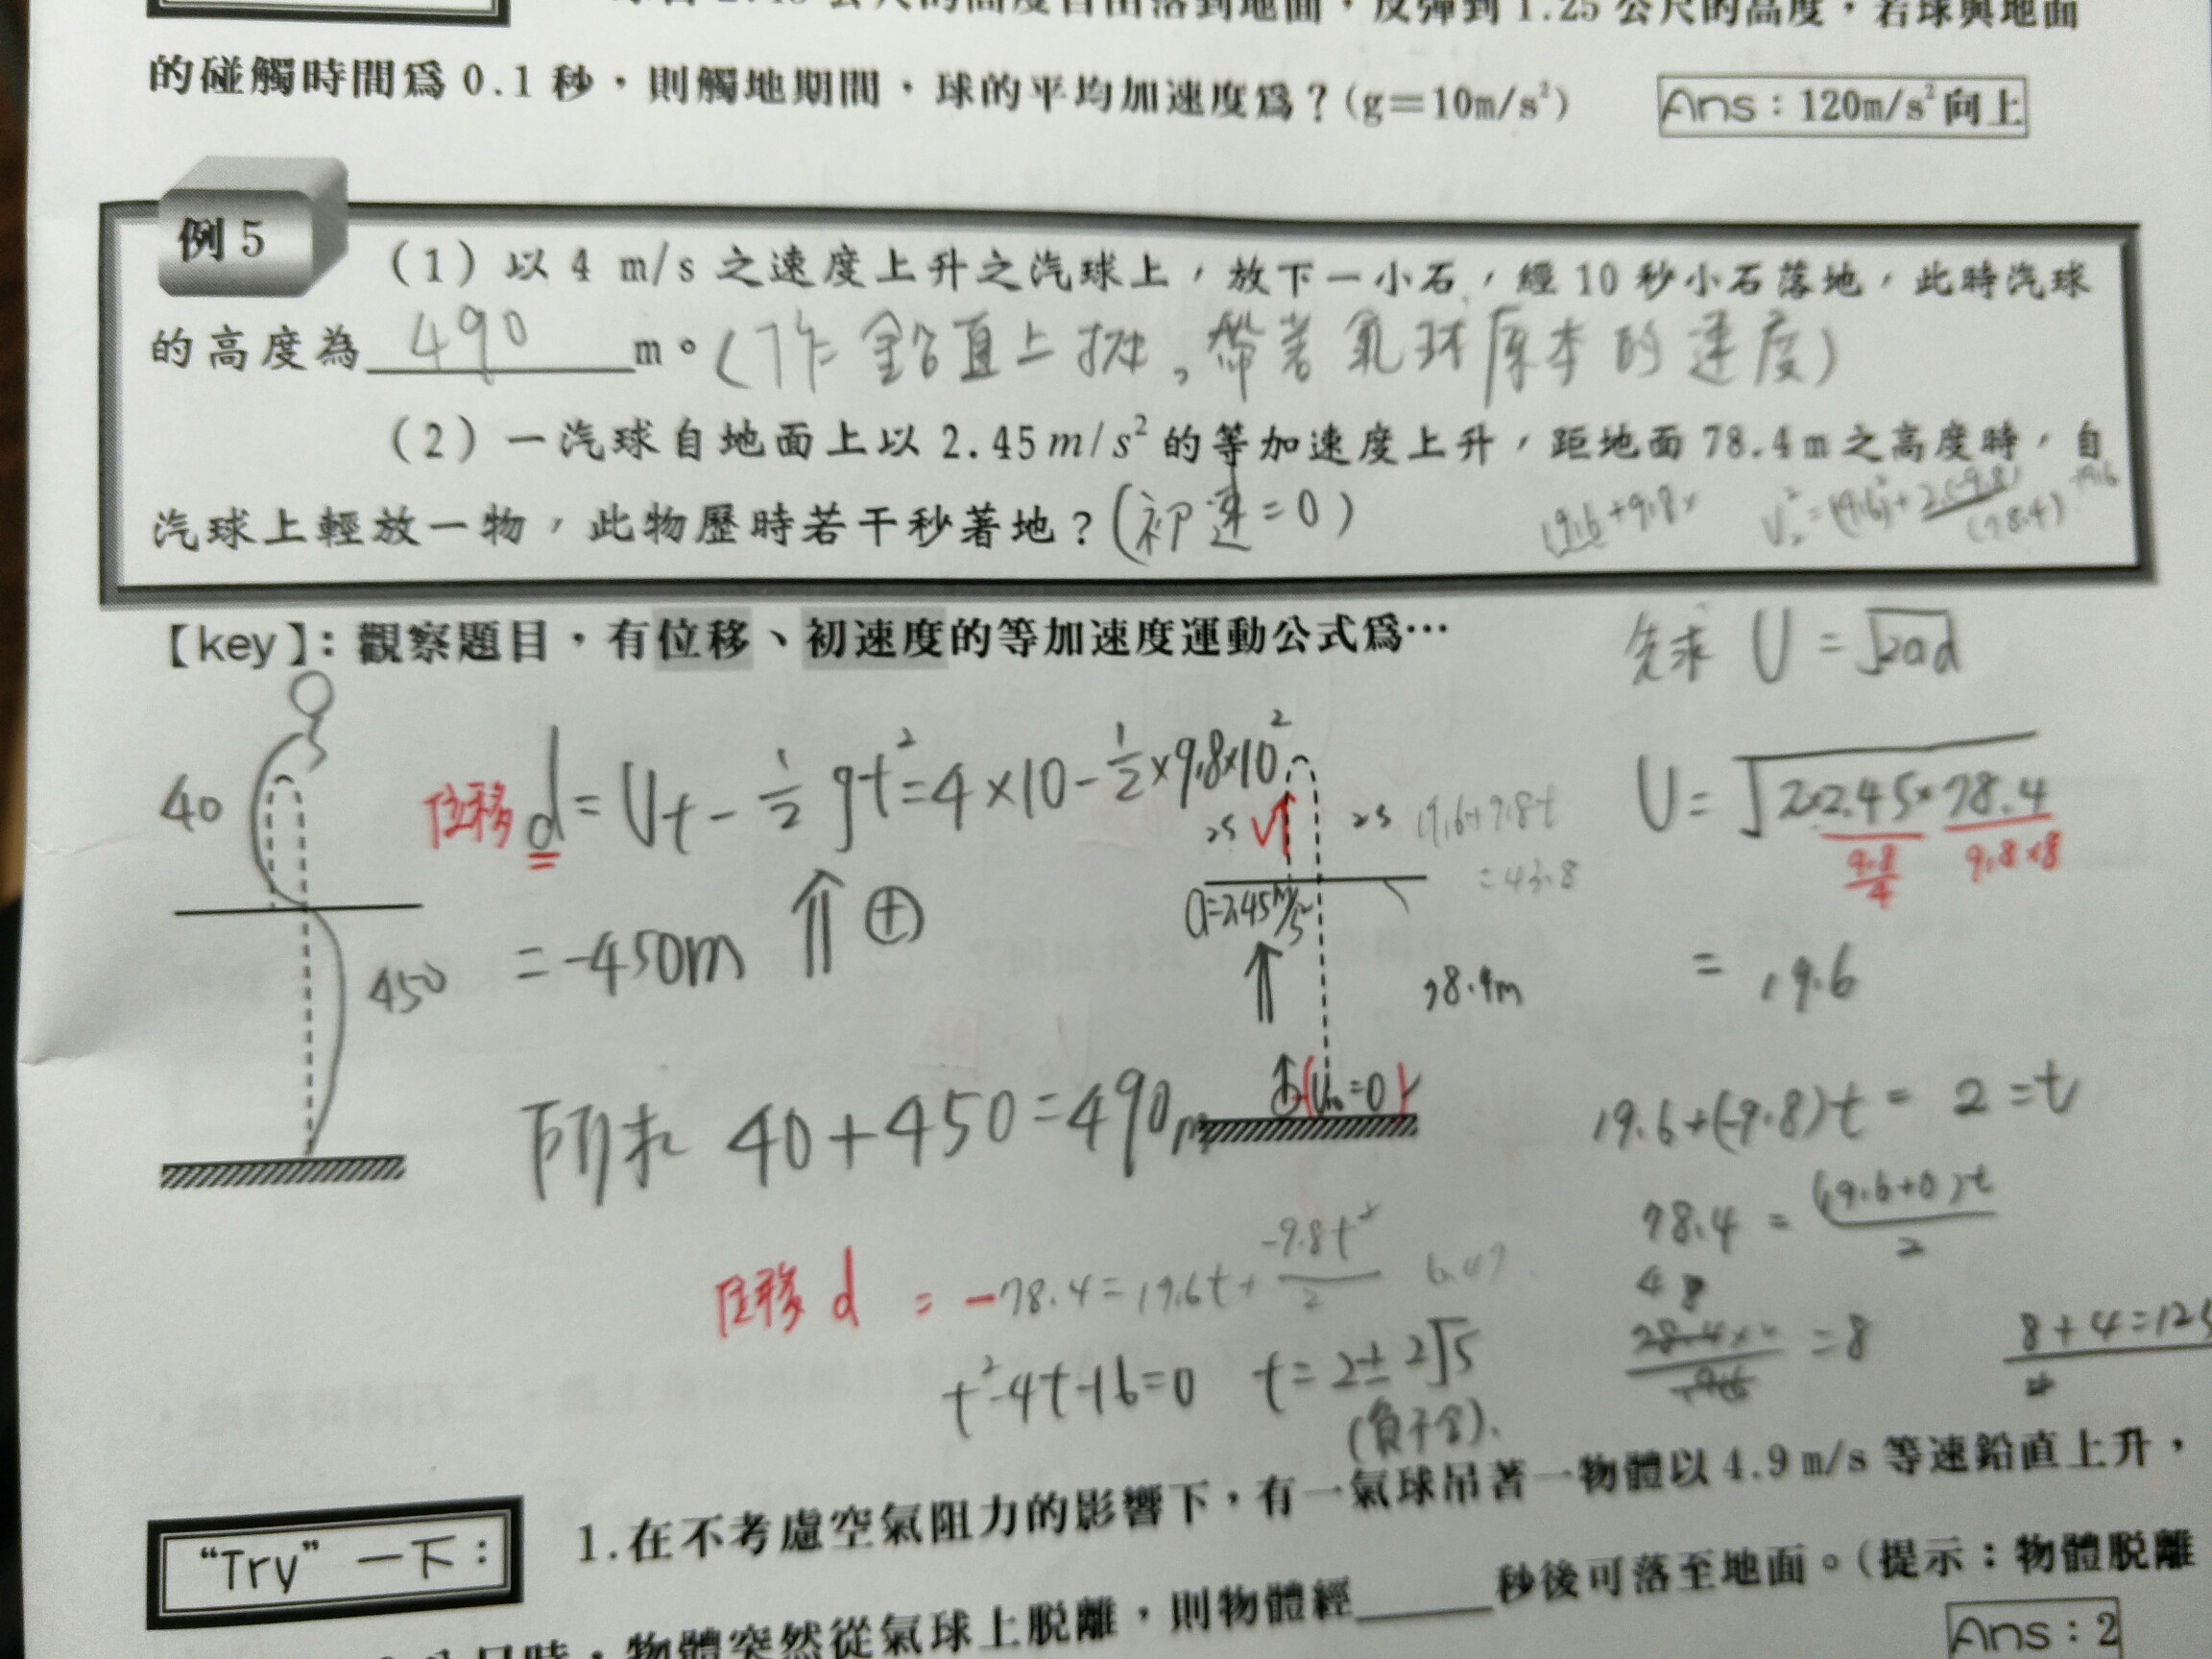 球自 2.45 公尺的高度自由落到地面，反彈到 1.25 公尺的高度，若球與地面
的碰觸時間爲 0.1 秒，則觸地期間，球的平均加速度爲？(g＝10m/s²)
Ans：120m/s²向上
例 5
(1) 以 4 m/s 之速度上升之汽球上，放下一小石，經 10 秒小石落地，此時汽球
的高度為 490 m。(作鉛直上拋，帶著氣球原本的速度)
(2) 一汽球自地面上以 2.45 m/s² 的等加速度上升，距地面 78.4 m 之高度時，自
汽球上輕放一物，此物歷時若干秒著地？(初速=0)
【key】：觀察題目，有位移、初速度的等加速度運動公式爲…
先求 V = √2ad
40
位移 d = Vt - ½ gt² = 4×10 - ½×9.8×10²
25 V 25 19.6+9.8t
= 43.8
V = √2×2.45×78.4
9.8/4 9.8×8
= -450m ⇑ ⊕
a=2.45m/s²
450
78.4m
= 19.6
所求 40+450=490m
(V₀=0)
19.6+(-9.8)t = 2 = t
78.4 = (19.6+0)t/2
位移 d = -78.4 = 19.6t + -9.8t²/2
48
=8
8+4=12s
t²-4t-16=0 t=2±2√5
(負不合).
“Try” 一下：
1.在不考慮空氣阻力的影響下，有一氣球吊著一物體以 4.9 m/s 等速鉛直上升，
時，物體突然從氣球上脫離，則物體經______秒後可落至地面。(提示：物體脫離
Ans：2